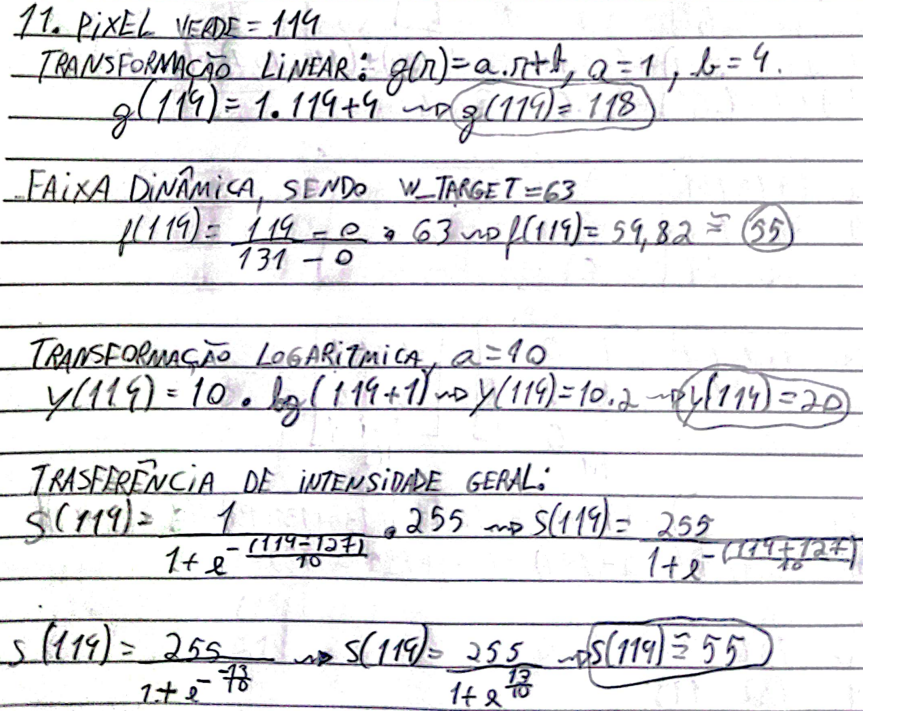 11. PIXEL VERDE = 114
TRANSFORMAÇÃO LINEAR: g(r)=a.r+b, a=1, b=4.
g(114)=1.114+4 ⇝ g(114)=118
FAIXA DINÂMICA, SENDO W_TARGET=63
f(114)= (114-0)/(131-0) . 63 ⇝ f(114)= 54,82 ≅ 55
TRANSFORMAÇÃO LOGARITMICA, a=10
y(114)=10.log(114+1) ⇝ y(114)=10.2 ⇝ y(114)=20
TRASFERÊNCIA DE INTENSIDADE GERAL:
S(114)= 1/(1+e^-((114-127)/10)) . 255 ⇝ S(114)= 255/(1+e^-((114+127)/10))
S(114)= 255/(1+e^-(-13/10)) ⇝ S(114)= 255/(1+e^(13/10)) ⇝ S(114)≅55